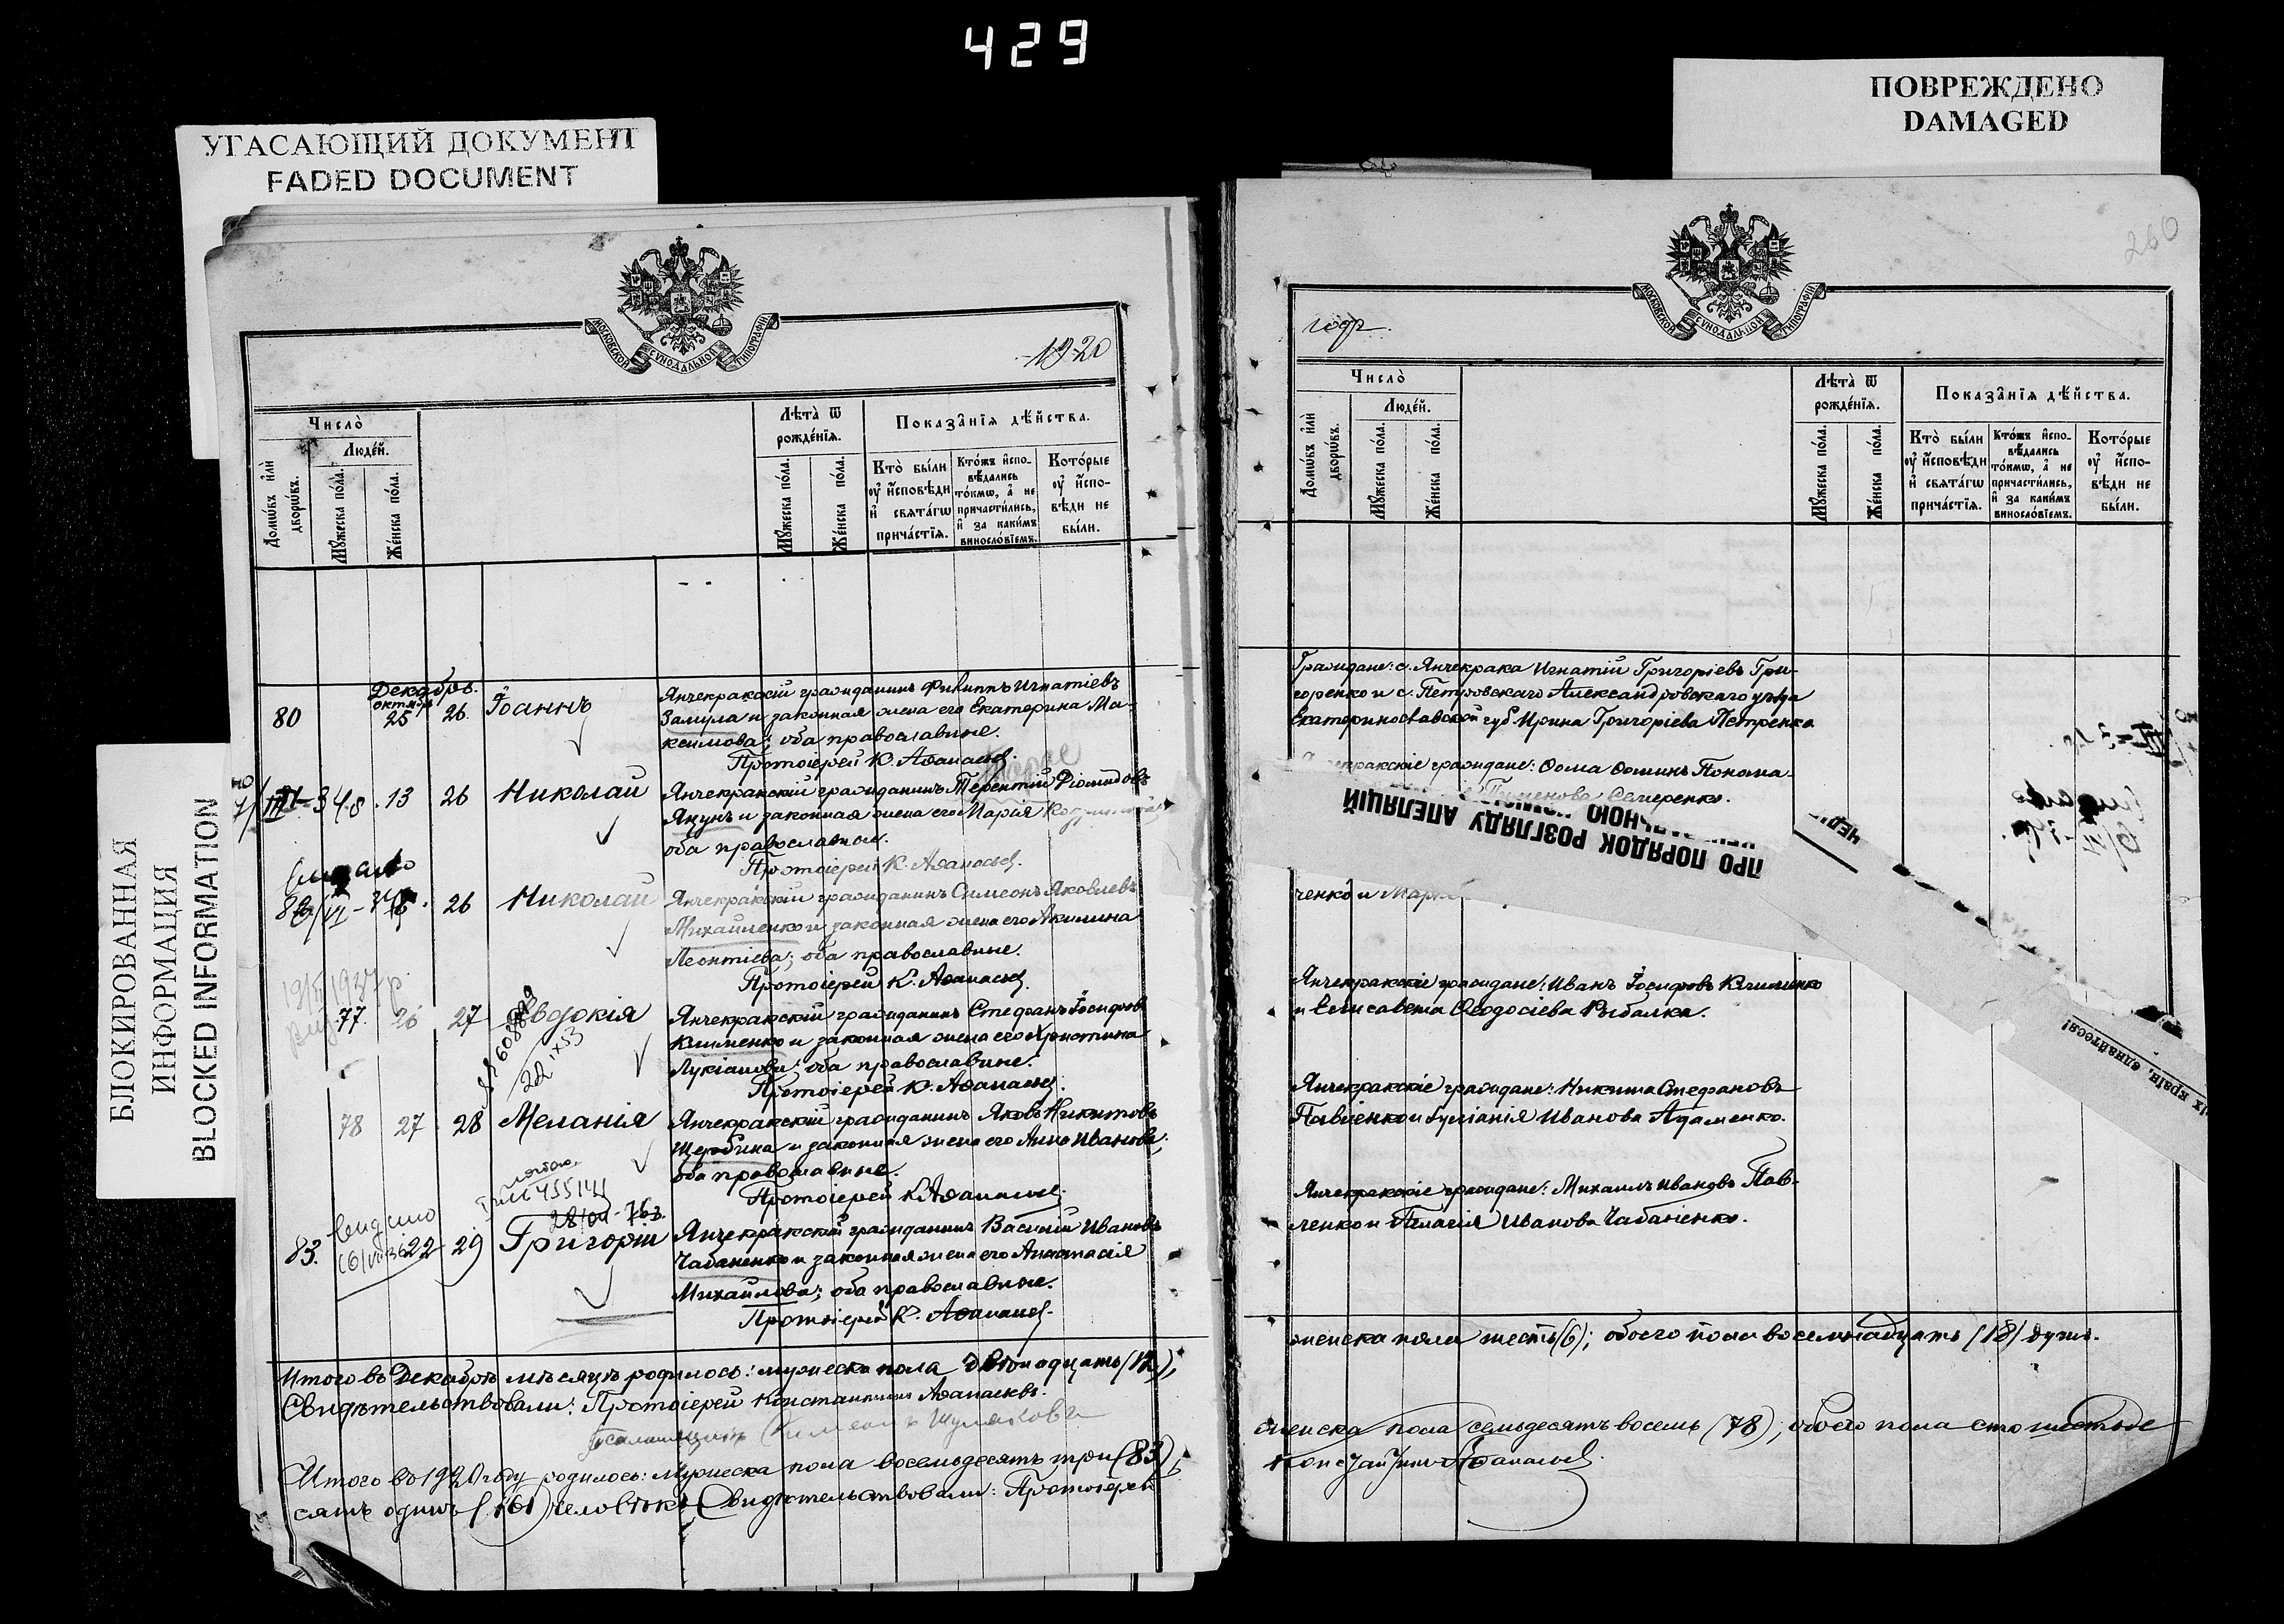 429
УГАСАЮЩИЙ ДОКУМЕНТ
FADED DOCUMENT
ПОВРЕЖДЕНО
DAMAGED
БЛОКИРОВАННАЯ
ИНФОРМАЦИЯ
BLOCKED INFORMATION
МОСКОВСКОЙ СѴНОДАЛЬНОЙ ТИПОГРАФІИ
1920
Число̀
Люде́й.
Домѡ́въ и҆лѝ дворѡ́въ.
Мꙋ́жеска по́ла.
Же́нска по́ла.
Лѣта̀ ѿ рожде́нїѧ.
Мꙋ́жеска по́ла.
Же́нска по́ла.
Показа̑нїѧ дѣ́йства.
Кто̀ бы́ли ѹ҆ и҆сповѣди и҆ свѧта́гѡ прича́стїѧ.
Кто́жъ и҆спо-
вѣ́дались
то́кмѡ, а҆ не
причасти́лись,
и҆ за каки́мъ
винослóвїемъ.
Кото́рые
ѹ҆ и҆спо-
вѣди не
бы́ли.
Декабрь.
80 октяб 25 26. Іоаннъ
Янчекракскій гражданинъ Филиппъ Игнатіевъ
Замула и законная жена его Екатерина Ма-
ксимова; оба православные.
Протоіерей К. Аѳанасьев.
13 26 Николай
Янчекракскій гражданинъ Терентій Діомидовъ
Якунъ и законная жена его Марія
оба православные.
Протоіерей К. Аѳанасьев.
26 Николай
Янчекракскій гражданинъ Симеонъ Яковлевъ
Михайленко и законная жена его Акилина
Леонтіева; оба православные.
Протоіерей К. Аѳанасьев.
19/II 1937 р.
77. 26 27 Евдокія
22 IX 53
Янчекракскій гражданинъ Стефанъ Іосифов
Клименко и законная жена его Христина
Лукіанова; оба православные.
Протоіерей К. Аѳанасьев.
78 27 28 Меланія
Янчекракскій гражданинъ Яковъ Никитовъ
Щербина и законная жена его Анна Иванова;
оба православные.
Протоіерей К. Аѳанасьев.
83. 22 29 Григорій
Янчекракскій гражданинъ Василій Ивановъ
Чабаненко и законная жена его Анастасія
Михайлова; оба православные.
Протоіерей К. Аѳанасьев.
Итого въ Декабрѣ мѣсяцѣ родилось: мужеска пола двѣнадцать (12);
Свидѣтельствовали: Протоіерей Константинъ Аѳанасьевъ.
Псаломщикъ Симеонъ
Итого въ 1920 году родилось: Мужеска пола восемьдесятъ три (83);
сятъ одинъ (161) человѣкъ. Свидѣтельствовали: Протоіерей
260
МОСКОВСКОЙ СѴНОДАЛЬНОЙ ТИПОГРАФІИ
годъ.
Число̀
Люде́й.
Домѡ́въ и҆лѝ дворѡ́въ.
Мꙋ́жеска по́ла.
Же́нска по́ла.
Лѣта̀ ѿ рожде́нїѧ.
Мꙋ́жеска по́ла.
Же́нска по́ла.
Показа̑нїѧ дѣ́йства.
Кто̀ бы́ли
ѹ҆ и҆сповѣди
и҆ свѧта́гѡ
прича́стїѧ.
Кто́жъ и҆спо-
вѣ́дались
то́кмѡ, а҆ не
причасти́лись,
и҆ за каки́мъ
винослóвїемъ.
Кото́рые
ѹ҆ и҆спо-
вѣди не
бы́ли.
Граждане: с. Янчекрака Игнатій Григоріевъ Гри-
горенко и с. Петровскаго Александровскаго уѣзда
Екатеринославской губ. Ирина Григоріева Петренко.
граждане: Ѳома Ѳоминъ Понома-
Пименова Семеренко.
ПРО ПОРЯДОК РОЗГЛЯДУ АПЕЛЯЦІЙ
ченко и
Янчекракскіе граждане: Иванъ Іосифовъ Клименко
и Елисавета Ѳеодосіева Рыбалка.
єднайтеся!
Янчекракскіе граждане: Никита Стефановъ
Павленко и Іуліанія Иванова Адаменко.
Янчекракскіе граждане: Михаилъ Ивановъ Пав-
ленко и Пелагія Иванова Чабаненко.
женска пола шесть (6); обоего пола восемнадцать (18) душъ.
женска пола семьдесятъ восемь (78); обоего пола сто шестьде
Константинъ Аѳанасьев.